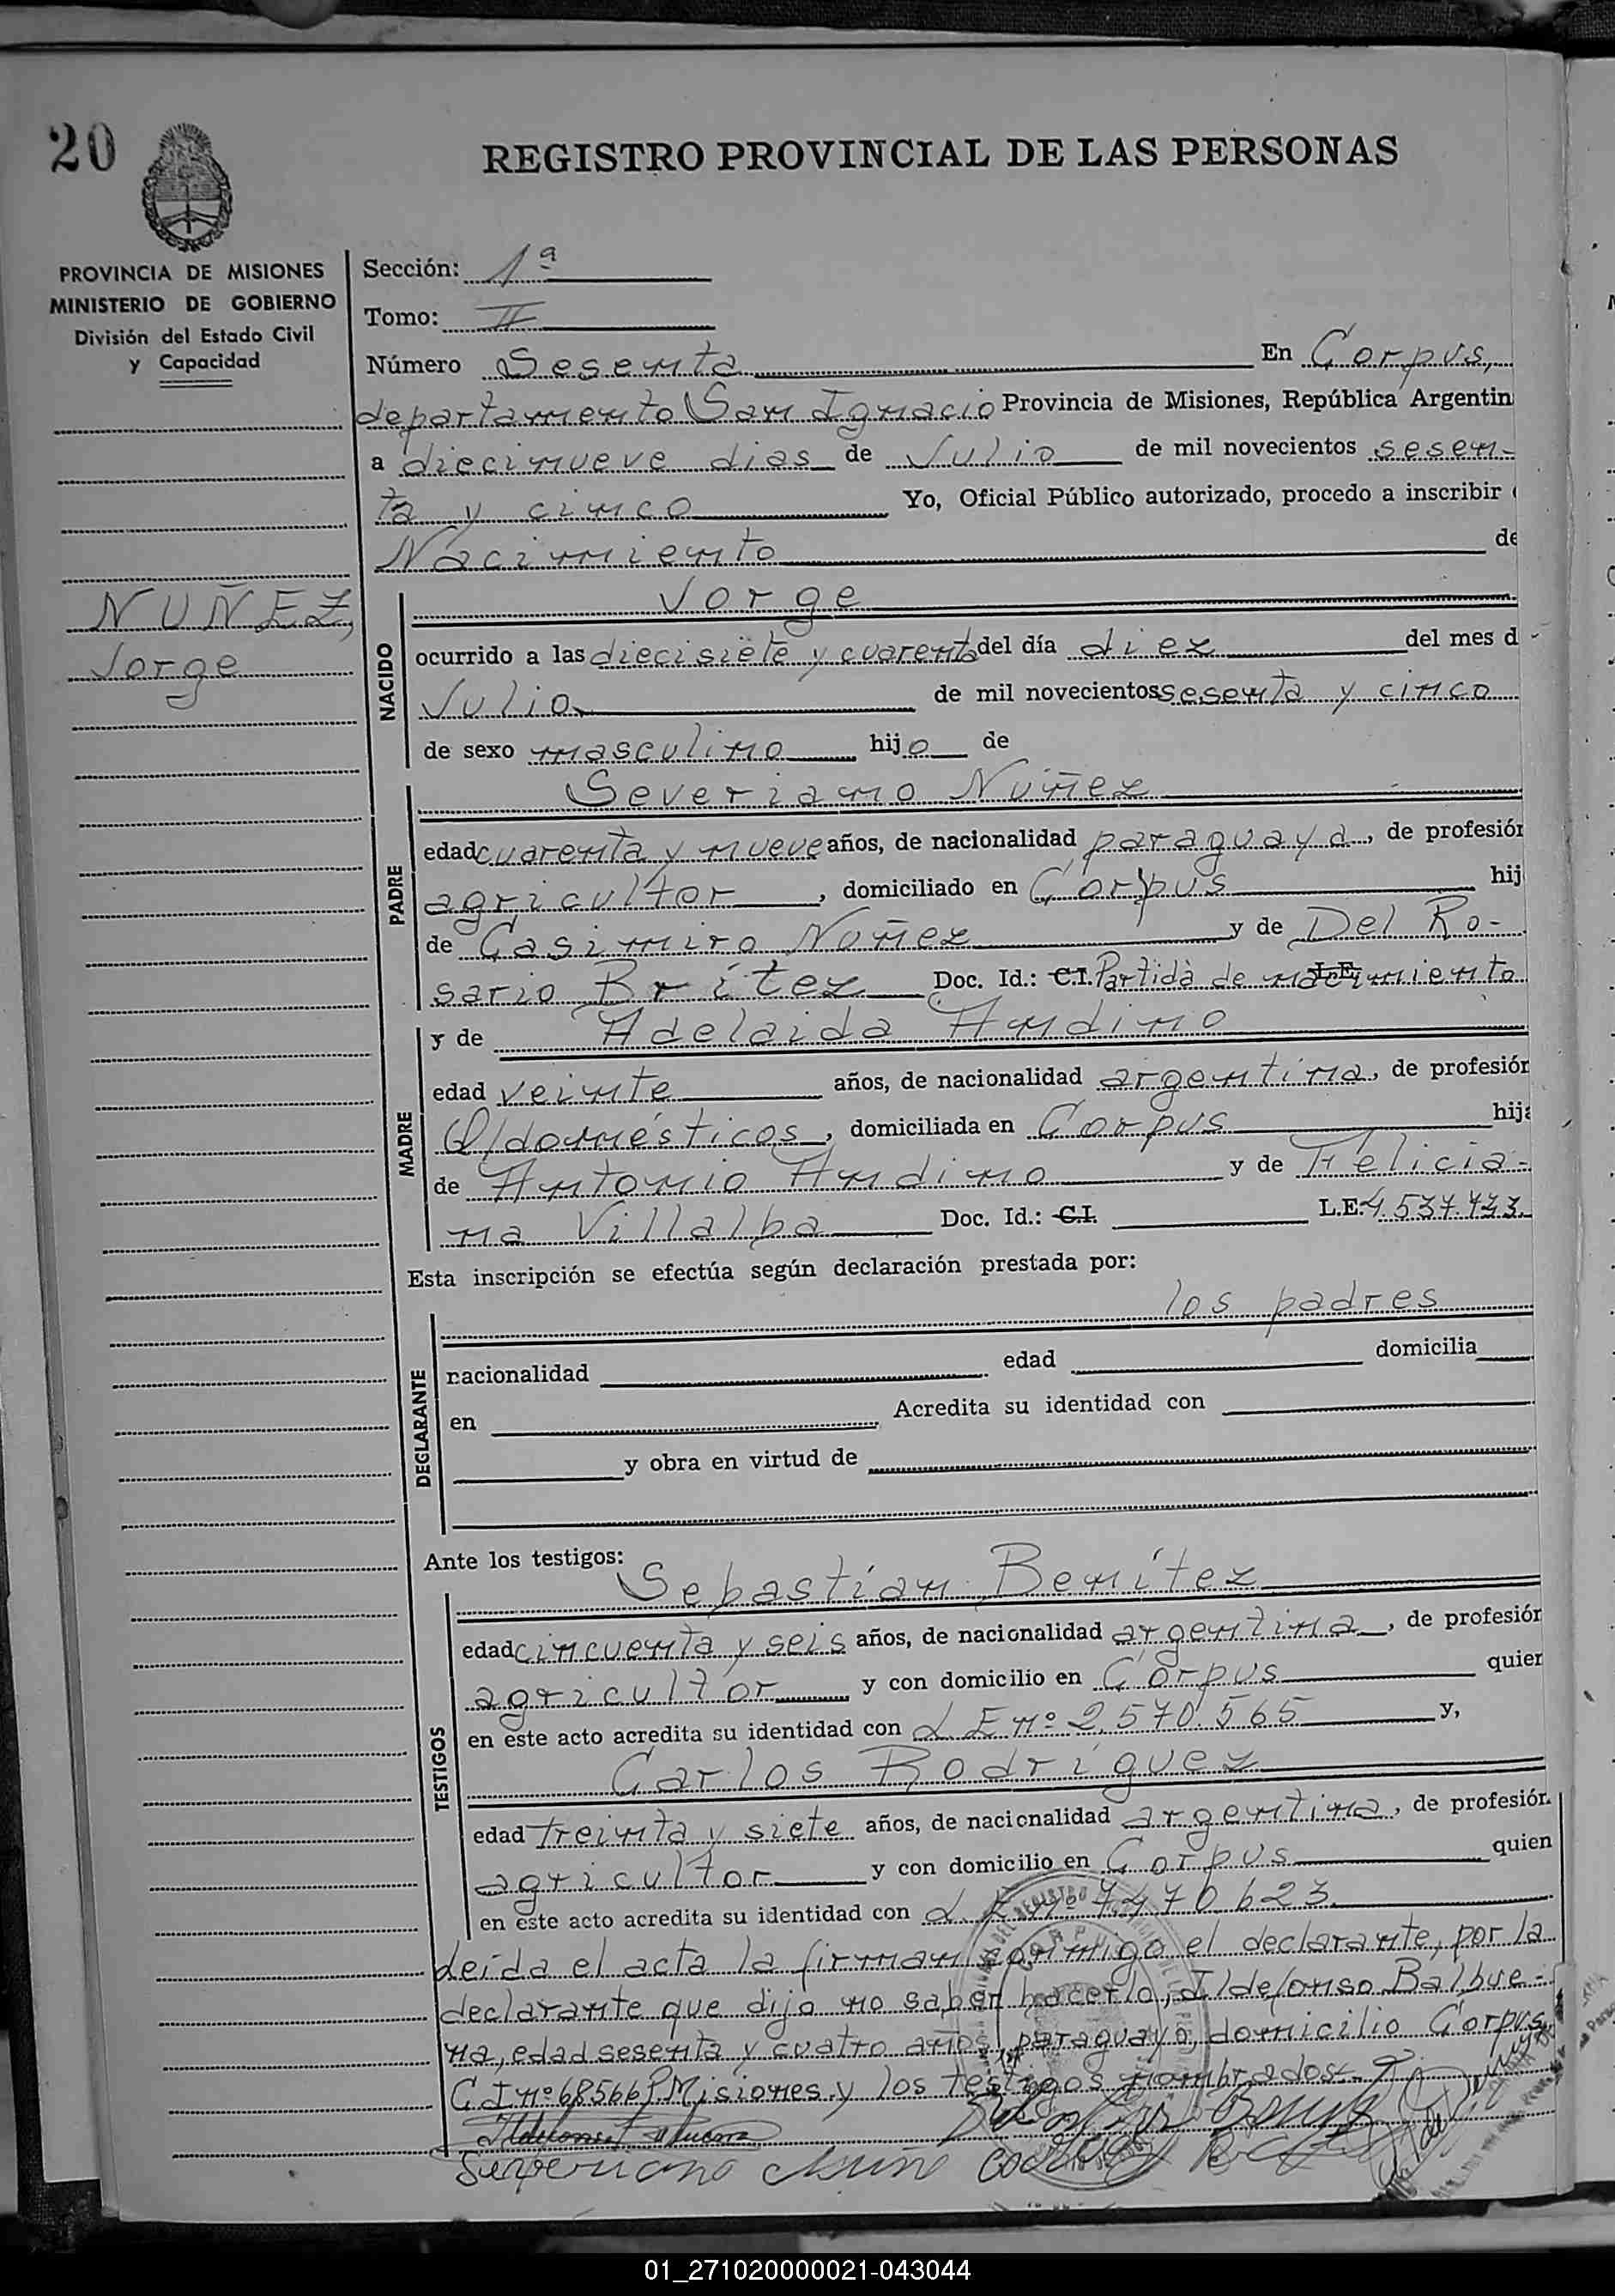 20
REGISTRO PROVINCIAL DE LAS PERSONAS
PROVINCIA DE MISIONES
MINISTERIO DE GOBIERNO
División del Estado Civil
y Capacidad
Sección: 1ª
Tomo: II
Número Sesenta En Corpus,
departamento San Ignacio Provincia de Misiones, República Argentin
a diecinueve dias de Julio de mil novecientos sesen-
ta y cinco Yo, Oficial Público autorizado, procedo a inscribir
Nacimiento de
NUÑEZ,
Jorge
NACIDO
Jorge
ocurrido a las diecisiete y cuarenta del día diez del mes d
Julio de mil novecientos sesenta y cinco
de sexo masculino hijo de
PADRE
Severiano Nuñez
edad cuarenta y nueve años, de nacionalidad paraguaya, de profesión
agricultor, domiciliado en Corpus hij
de Casimiro Nuñez y de Del Ro-
sario Brítez Doc. Id.: C.I. Partida de nacimiento
MADRE
y de Adelaida Andino
edad veinte años, de nacionalidad argentina, de profesión
Q/domésticos, domiciliada en Corpus hija
de Antonio Andino y de Felicia-
na Villalba Doc. Id.: C.I. L.E.
Esta inscripción se efectúa según declaración prestada por:
DECLARANTE
los padres
nacionalidad edad domicilia
en Acredita su identidad con
y obra en virtud de
Ante los testigos:
TESTIGOS
Sebastián Benítez
edad cincuenta y seis años, de nacionalidad argentina, de profesión
agricultor y con domicilio en Corpus quien
en este acto acredita su identidad con L E nº 2.570.565 y,
Carlos Rodríguez
edad treinta y siete años, de nacionalidad argentina, de profesión
agricultor y con domicilio en Corpus quien
en este acto acredita su identidad con L.E nº 7.470623
Leída el acta la firman conmigo el declarante, por la
declarante que dijo no saber hacerlo, Ildefonso Balbue-
na, edad sesenta y cuatro años, paraguayo, domicilio Corpus
C I nº 68566 P. Misiones y los testigos nombrados.-
01_271020000021-043044